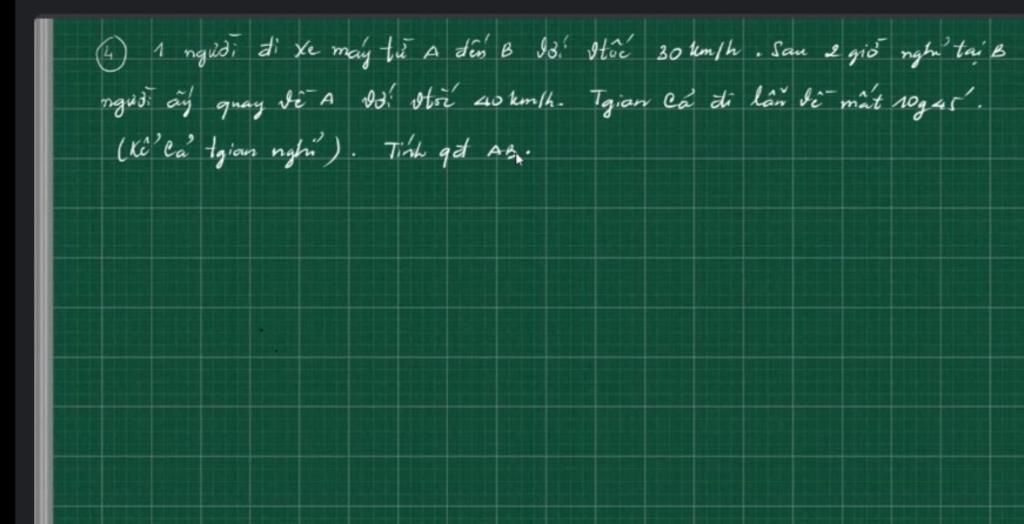 ④ 1 người đi xe máy từ A đến B với vtốc 30 km/h. Sau 2 giờ nghỉ tại B
người ấy quay về A với vtốc 40 km/h. Tgian cả đi lẫn về mất 10g45'.
(Kể cả tgian nghỉ). Tính qđ AB.